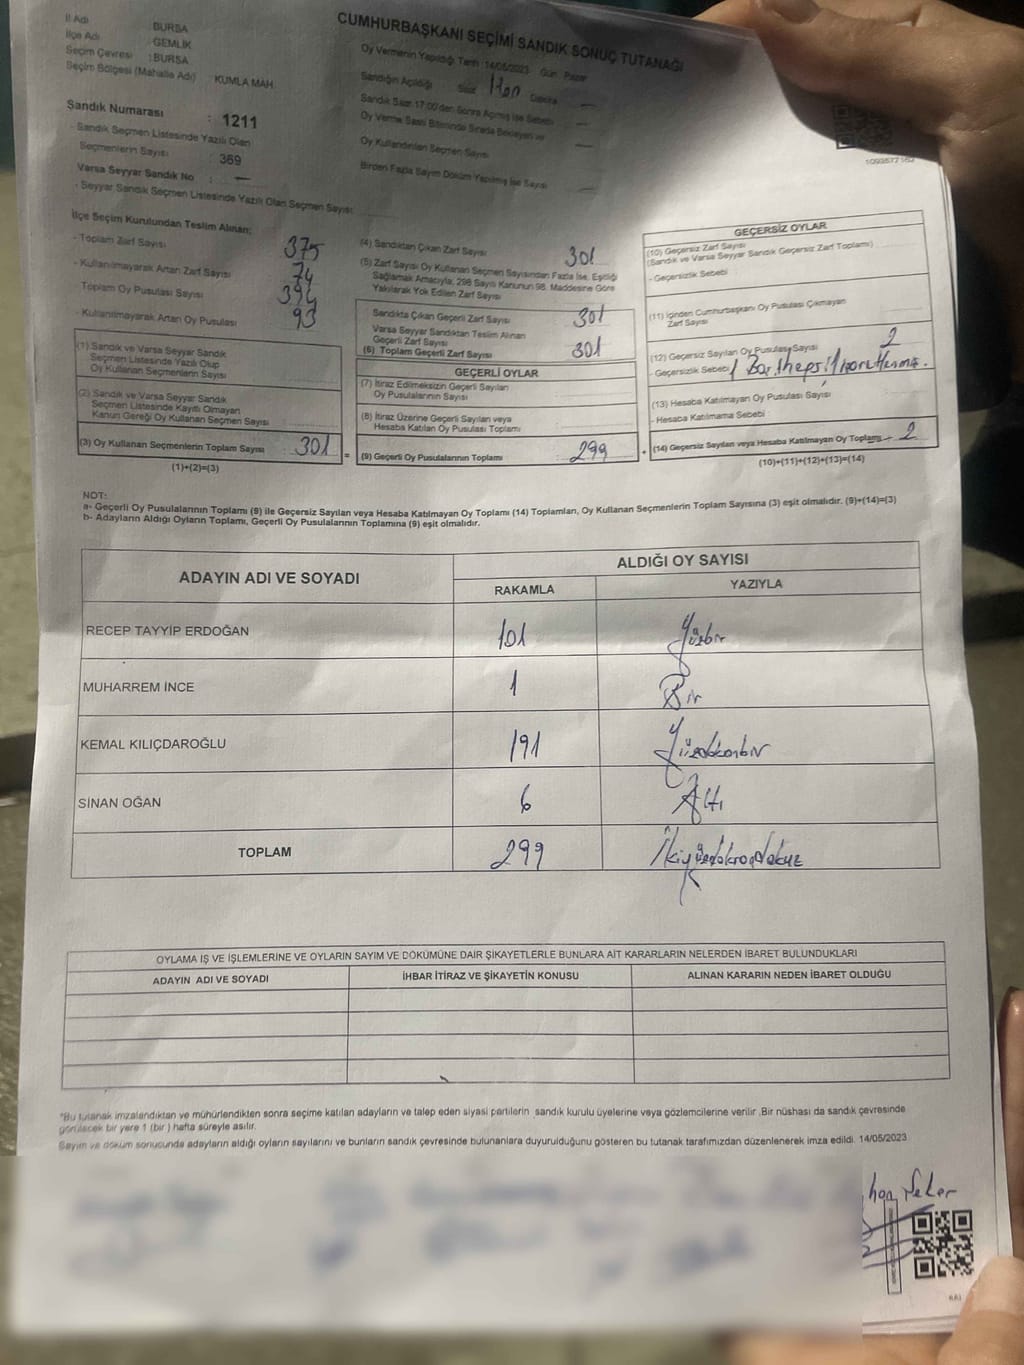 CUMHURBAŞKANI SEÇİMİ SANDIK SONUÇ TUTANAĞI
İl Adı : BURSA
İlçe Adı : GEMLİK
Seçim Çevresi : BURSA
Seçim Bölgesi (Mahalle Adı) KUMLA MAH
Sandık Numarası : 1211
- Sandık Seçmen Listesinde Yazılı Olan
Seçmenlerin Sayısı : 369
Varsa Seyyar Sandık No : —
- Seyyar Sandık Seçmen Listesinde Yazılı Olan Seçmen Sayısı
Oy Vermenin Yapıldığı Tarih : 14/05/2023 Gün : Pazar
Sandığın Açıldığı Saat Dakika —
Sandık Saat 17:00'den Sonra Açılmış İse Sebebi —
Oy Verme Saati Bitiminde Sırada Bekleyen ve —
Oy Kullandırılan Seçmen Sayısı
Birden Fazla Sayım Döküm Yapılmış İse Sayısı —
İlçe Seçim Kurulundan Teslim Alınan;
- Toplam Zarf Sayısı 375
- Kullanılmayarak Artan Zarf Sayısı 74
Toplam Oy Pusulası Sayısı 394
- Kullanılmayarak Artan Oy Pusulası 93
(1) Sandık ve Varsa Seyyar Sandık
Seçmen Listesinde Yazılı Olup
Oy Kullanan Seçmenlerin Sayısı
(2) Sandık ve Varsa Seyyar Sandık
Seçmen Listesinde Kayıtlı Olmayan
Kanun Gereği Oy Kullanan Seçmen Sayısı
(3) Oy Kullanan Seçmenlerin Toplam Sayısı 301 =
(1)+(2)=(3)
(4) Sandıktan Çıkan Zarf Sayısı 301
(5) Zarf Sayısı Oy Kullanan Seçmen Sayısından Fazla İse, Eşitliği
Sağlamak Amacıyla, 298 Sayılı Kanunun 98. Maddesine Göre
Yakılarak Yok Edilen Zarf Sayısı
Sandıkta Çıkan Geçerli Zarf Sayısı 301
Varsa Seyyar Sandıktan Teslim Alınan
Geçerli Zarf Sayısı
(6) Toplam Geçerli Zarf Sayısı 301
GEÇERLİ OYLAR
(7) İtiraz Edilmeksizin Geçerli Sayılan
Oy Pusulalarının Sayısı
(8) İtiraz Üzerine Geçerli Sayılan veya
Hesaba Katılan Oy Pusulası Toplamı
(9) Geçerli Oy Pusulalarının Toplamı 299 +
1093577162
GEÇERSİZ OYLAR
(10) Geçersiz Zarf Sayısı
(Sandık ve Varsa Seyyar Sandık Geçersiz Zarf Toplamı)
- Geçersizlik Sebebi
(11) İçinden Cumhurbaşkanı Oy Pusulası Çıkmayan
Zarf Sayısı
(12) Geçersiz Sayılan Oy Pusulası Sayısı 2
- Geçersizlik Sebebi
(13) Hesaba Katılmayan Oy Pusulası Sayısı
- Hesaba Katılmama Sebebi
(14) Geçersiz Sayılan veya Hesaba Katılmayan Oy Toplamı 2
(10)+(11)+(12)+(13)=(14)
NOT:
a- Geçerli Oy Pusulalarının Toplamı (9) ile Geçersiz Sayılan veya Hesaba Katılmayan Oy Toplamı (14) Toplamları, Oy Kullanan Seçmenlerin Toplam Sayısına (3) eşit olmalıdır. (9)+(14)=(3)
b- Adayların Aldığı Oyların Toplamı, Geçerli Oy Pusulalarının Toplamına (9) eşit olmalıdır.
ADAYIN ADI VE SOYADI
ALDIĞI OY SAYISI
RAKAMLA YAZIYLA
RECEP TAYYİP ERDOĞAN 101 Yüzbir
MUHARREM İNCE 1 Bir
KEMAL KILIÇDAROĞLU 191 Yüzdoksanbir
SİNAN OĞAN 6 Altı
TOPLAM 299 İkiyüzdoksandokuz
OYLAMA İŞ VE İŞLEMLERİNE VE OYLARIN SAYIM VE DÖKÜMÜNE DAİR ŞİKAYETLERLE BUNLARA AİT KARARLARIN NELERDEN İBARET BULUNDUKLARI
ADAYIN ADI VE SOYADI İHBAR İTİRAZ VE ŞİKAYETİN KONUSU ALINAN KARARIN NEDEN İBARET OLDUĞU
*Bu tutanak imzalandıktan ve mühürlendikten sonra seçime katılan adayların ve talep eden siyasi partilerin sandık kurulu üyelerine veya gözlemcilerine verilir. Bir nüshası da sandık çevresinde
görülecek bir yere 1 (bir) hafta süreyle asılır.
Sayım ve döküm sonucunda adayların aldığı oyların sayılarını ve bunların sandık çevresinde bulunanlara duyurulduğunu gösteren bu tutanak tarafımızdan düzenlenerek imza edildi. 14/05/2023